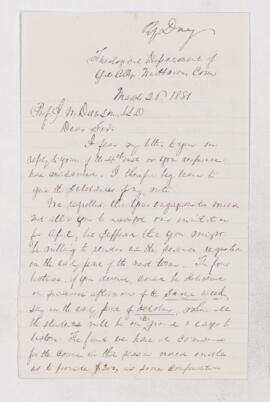 Theological Department of
Yale College New Haven Conn
March 26, 1881
Prof J. W. Dawson, LLD
Dear Sir.
I fear my letter to you in
reply to yours of the
has miscarried. I therefore beg leave to
give the substance of my note.
We regretted that your engagements would
not allow you to accept our invitation
for April, but hoped that you might
be willing to render us the service requested
in the early part of the next term. The four
lectures, if you desired could be delivered
on successive afternoons of the same week,
say in the early part of October, when all
the students will be on the ground & eager to
listen. The funds we have at command
for the course in the present case enable
us to provide $200 as some compensation